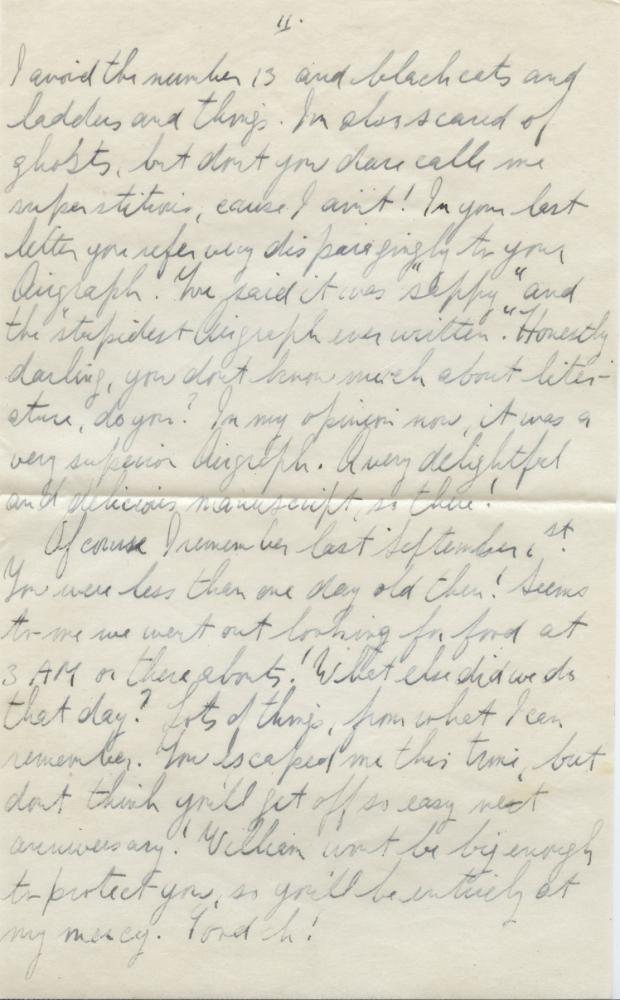 11.
I avoid the number 13 and black cats and
ladders and things. Im also scared of
ghosts, but dont you dare calls me
superstitious, cause I ain't! In your last
letter you refer very disparagingly to your
Airgraph. You said it was "sappy" and
the "stupidest Airgraph ever written". Honestly
darling, you dont know much about liter-
ature, do you? In my opinion now, it was a
very superior Airgraph. A very delightful
and delicious manuscript, so there!
Of course I remember last September 1st.
You were less than one day old then! Seems
to me we went out looking for food at
3 AM or thereabouts! What else did we do
that day? Lots of things, from what I can
remember. You escaped me this time, but
dont think you'll get off so easy next
anniversary! William wont be big enough
to protect you, so you'll be entirely at
my mercy.